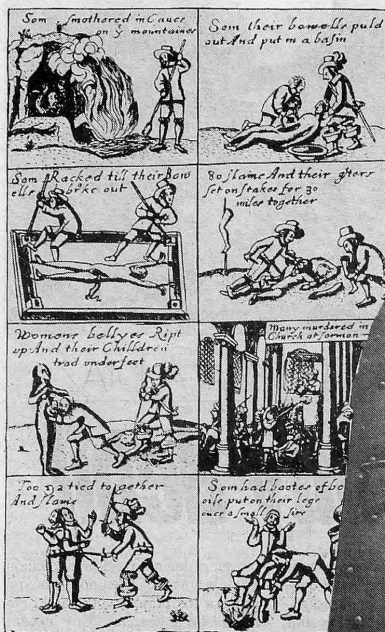 Som smothered in Caves
on yᵉ mountaines
Som their bowells puld
out And put in a basin
Som Racked till their Bow
ells broke out
80 slame And their
set on stakes for 30
miles together
Womens bellyes Ript
up And their Chilldren
trod underfeet
Many murdered in
Church at sermon
Too & 2 tied together
And slame
Som had bootes of bo
put on their legs
over a small fire